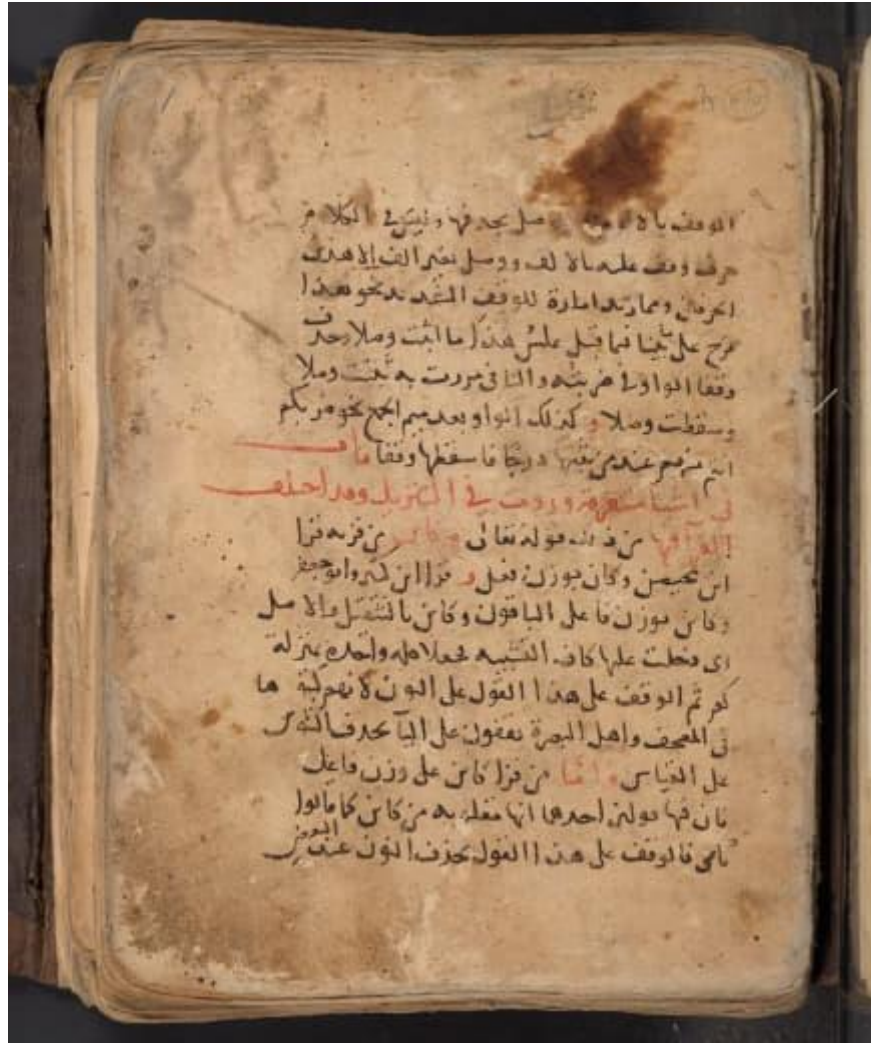 الوقف بالا صل بحذفها وليس في الكلام
حرف وقف عليه بالالف ووصل بغير الف الا هذين
الحرفين ومما زيد امارة للوقف التشديد نحو هذا
فرج على ما بينا فيما قبل عكس هذا ما اثبت وصلا وحذف
وقفا الواو في ضربته واليا في مررت به تثبت وصلا
وسقطت وصلا وكذلك الواو بعد ميم الجمع نحو بكم
انتم عند من درجا فاسقطها وقفا باب
في اشيا متفرقة وردت في التنزيل وقد اختلف
القرا فيها من ذلك قوله تعالى وكاين من قرية قرا
ابن محيصن وكان بوزن فعل وقرا ابن كثير وابو جعفر
وكاين بوزن فاعل الباقون وكاين بالتثقيل والاصل
اى دخلت عليها كاف التشبيه فجعلا كلمة واحدة بمنزلة
كم ثم الوقف على هذا القول على النون لانهم كتبوها
في المصحف واهل البصرة يقفون على اليا بحذف التنوين
على القياس واما من قرا كاين على وزن فاعل
فان فيها قولين احدهما انها مقلوبة من كاين كما قالوا
فالوقف على هذا القول بحذف النون عند البعض